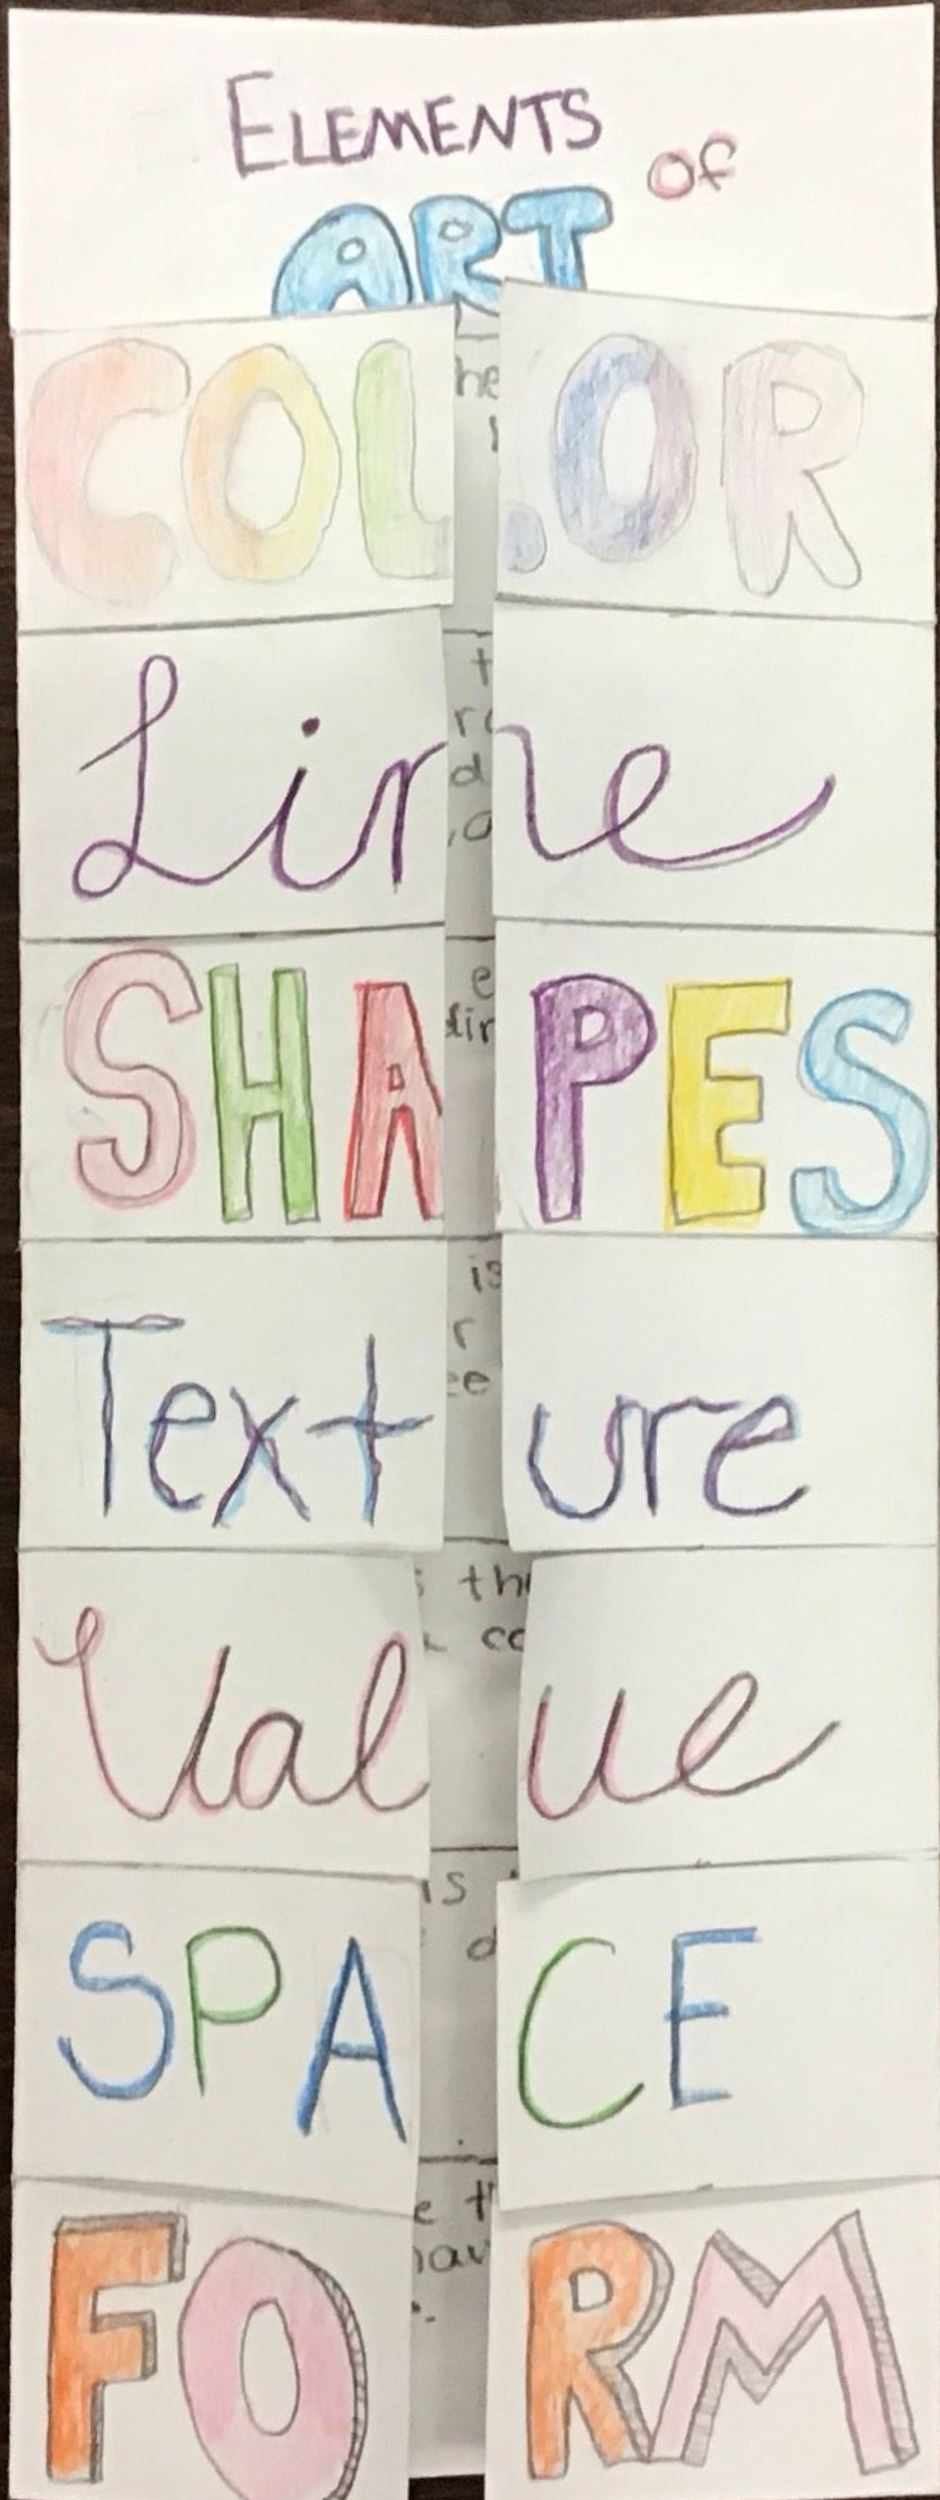 ELEMENTS
of
ART
COLOR
Line
SHAPES
Texture
Value
SPACE
FORM